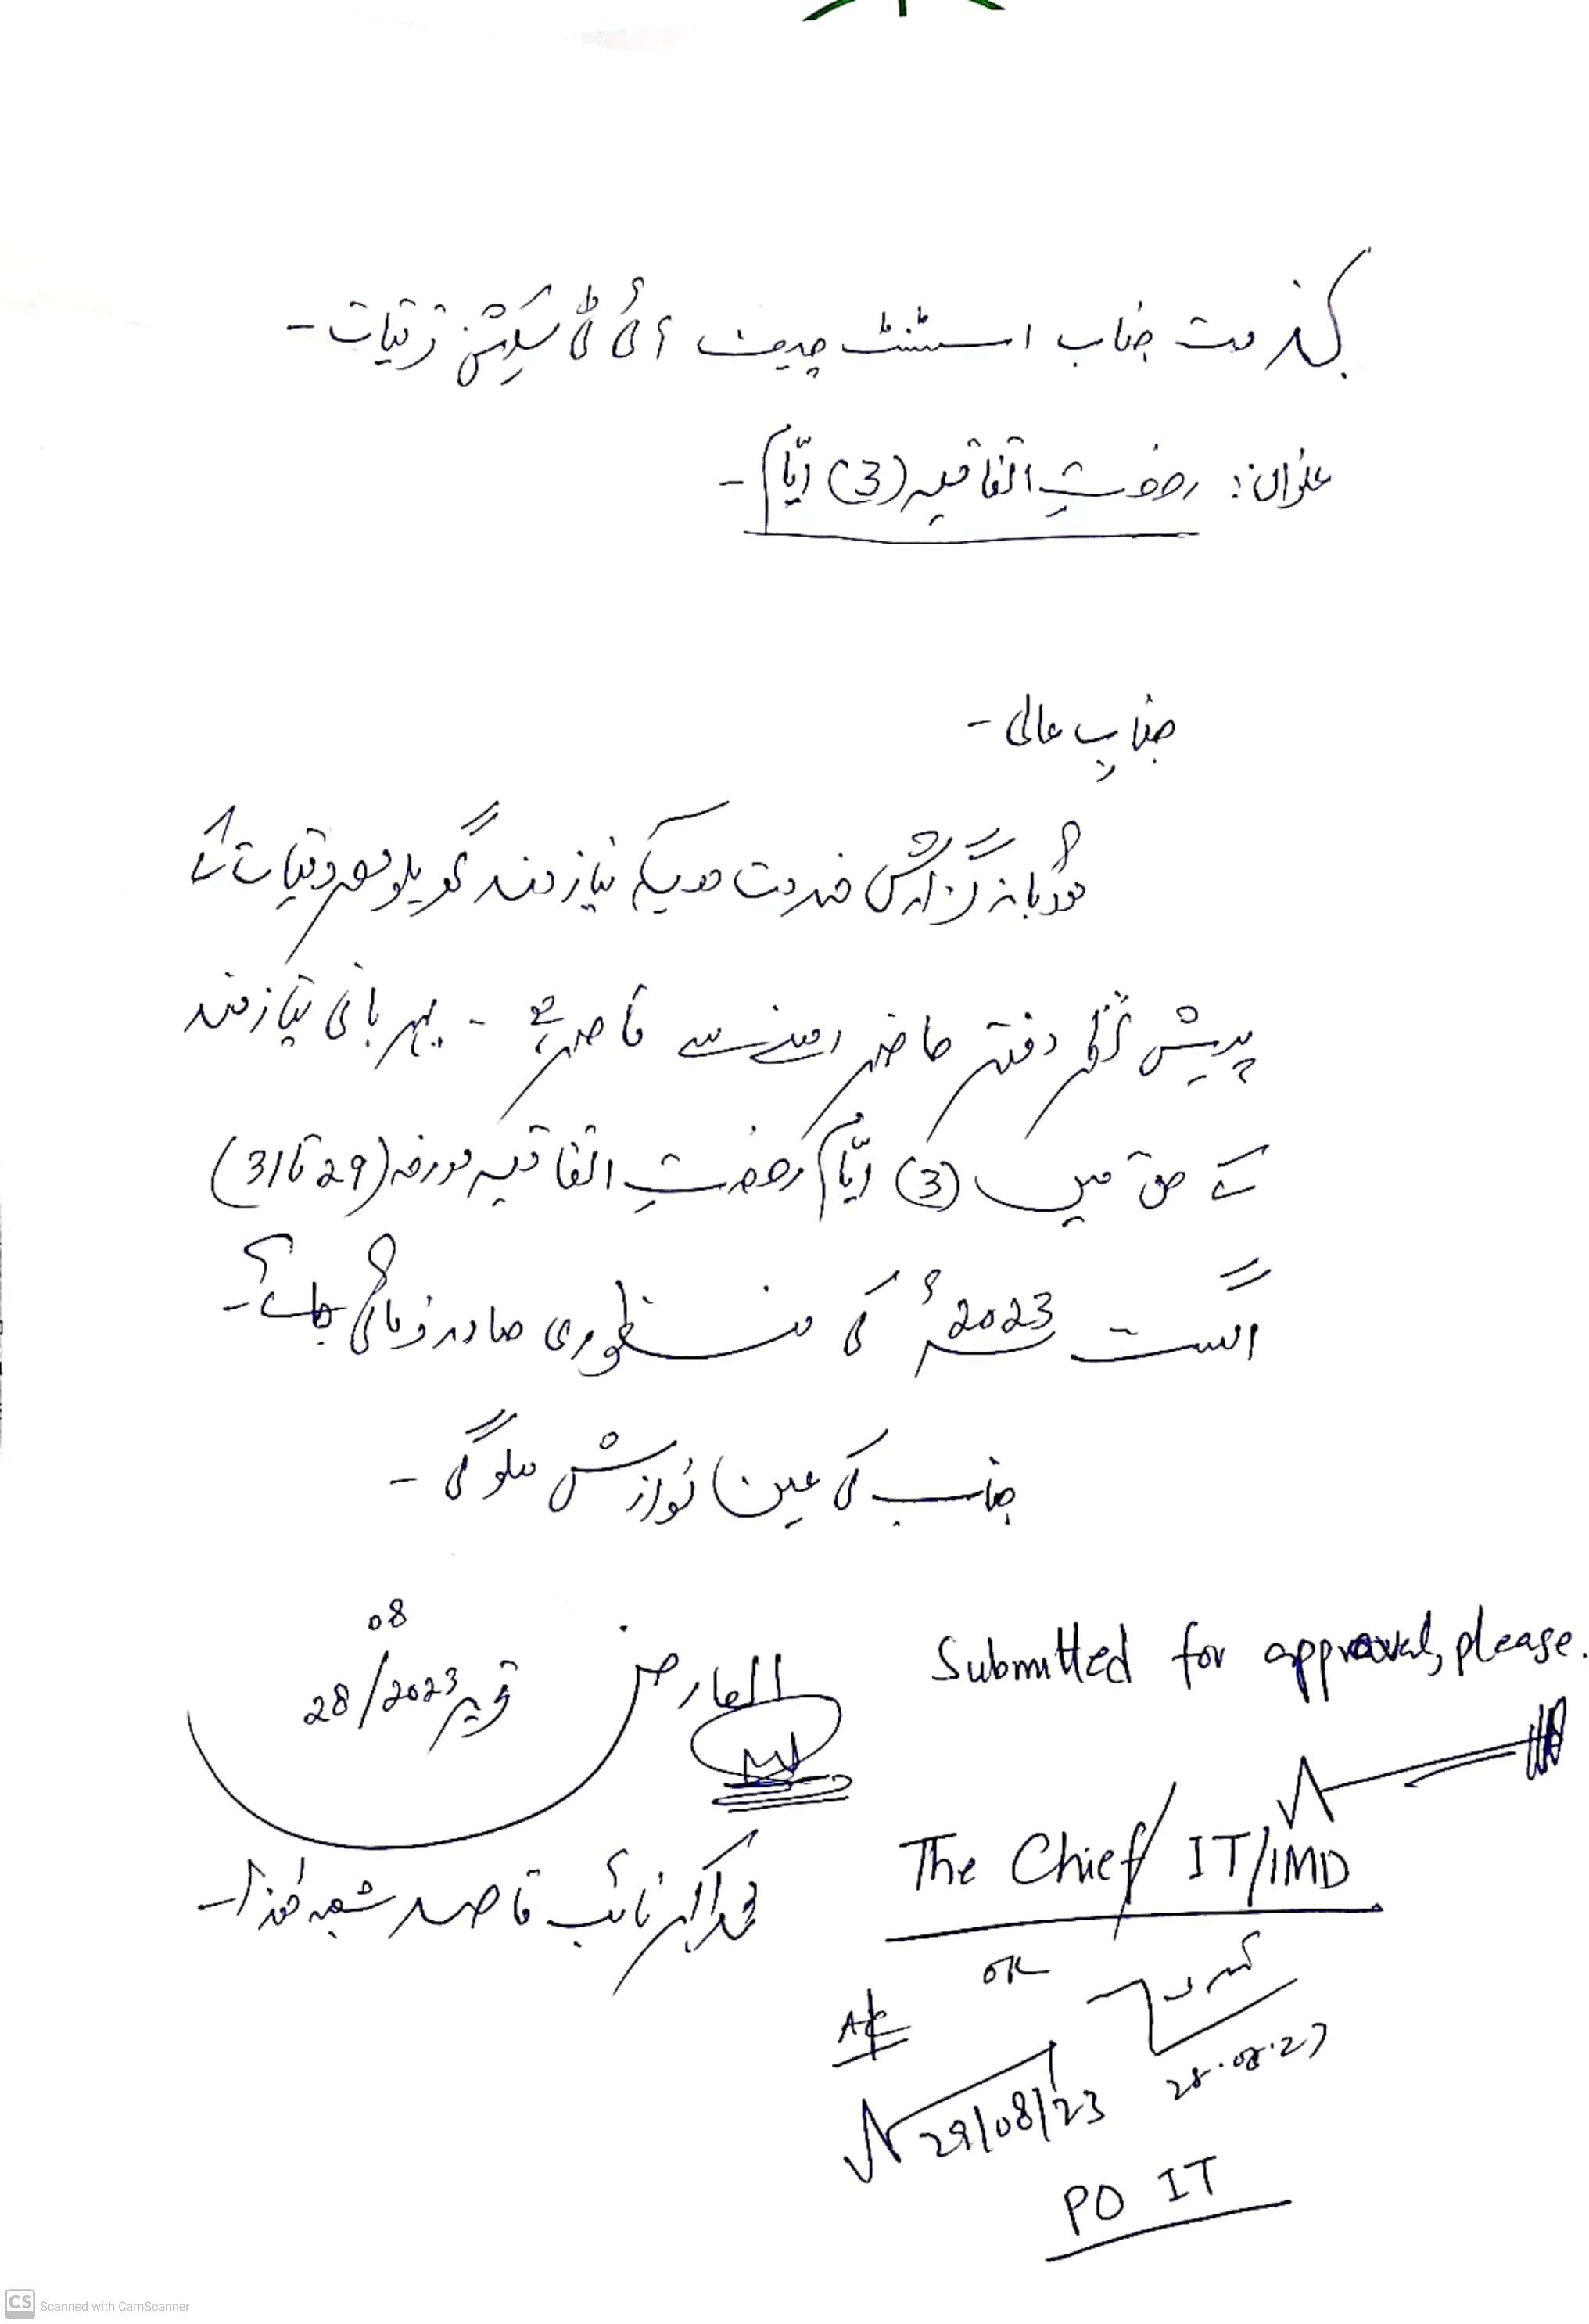 بخدمت جناب اسسٹنٹ چیف آئی ٹی سیکشن ترقیات۔
عنوان: رخصتِ اتفاقیہ (3) ایّام۔
جنابِ عالی۔
مؤدبانہ گزارش خدمت ہیکہ نیازمند گھریلو مصروفیات کے
پیش نظر دفتر حاضر رہنے سے قاصر ہے۔ بمہربانی نیازمند
کے حق میں (3) ایّام رخصتِ اتفاقیہ مورخہ (29 تا 31)
اگست 2023ء کی منظوری صادر فرمائی جائے۔
جناب کی عین نوازش ہوگی۔
العارض تحریر 28/08/2023
محمد اکبر نائب قاصد شعبہ ھٰذا۔
Submitted for approval, please.
The Chief/IT/IMD
OK
28.08.23
29/08/23
PO IT
CS Scanned with CamScanner